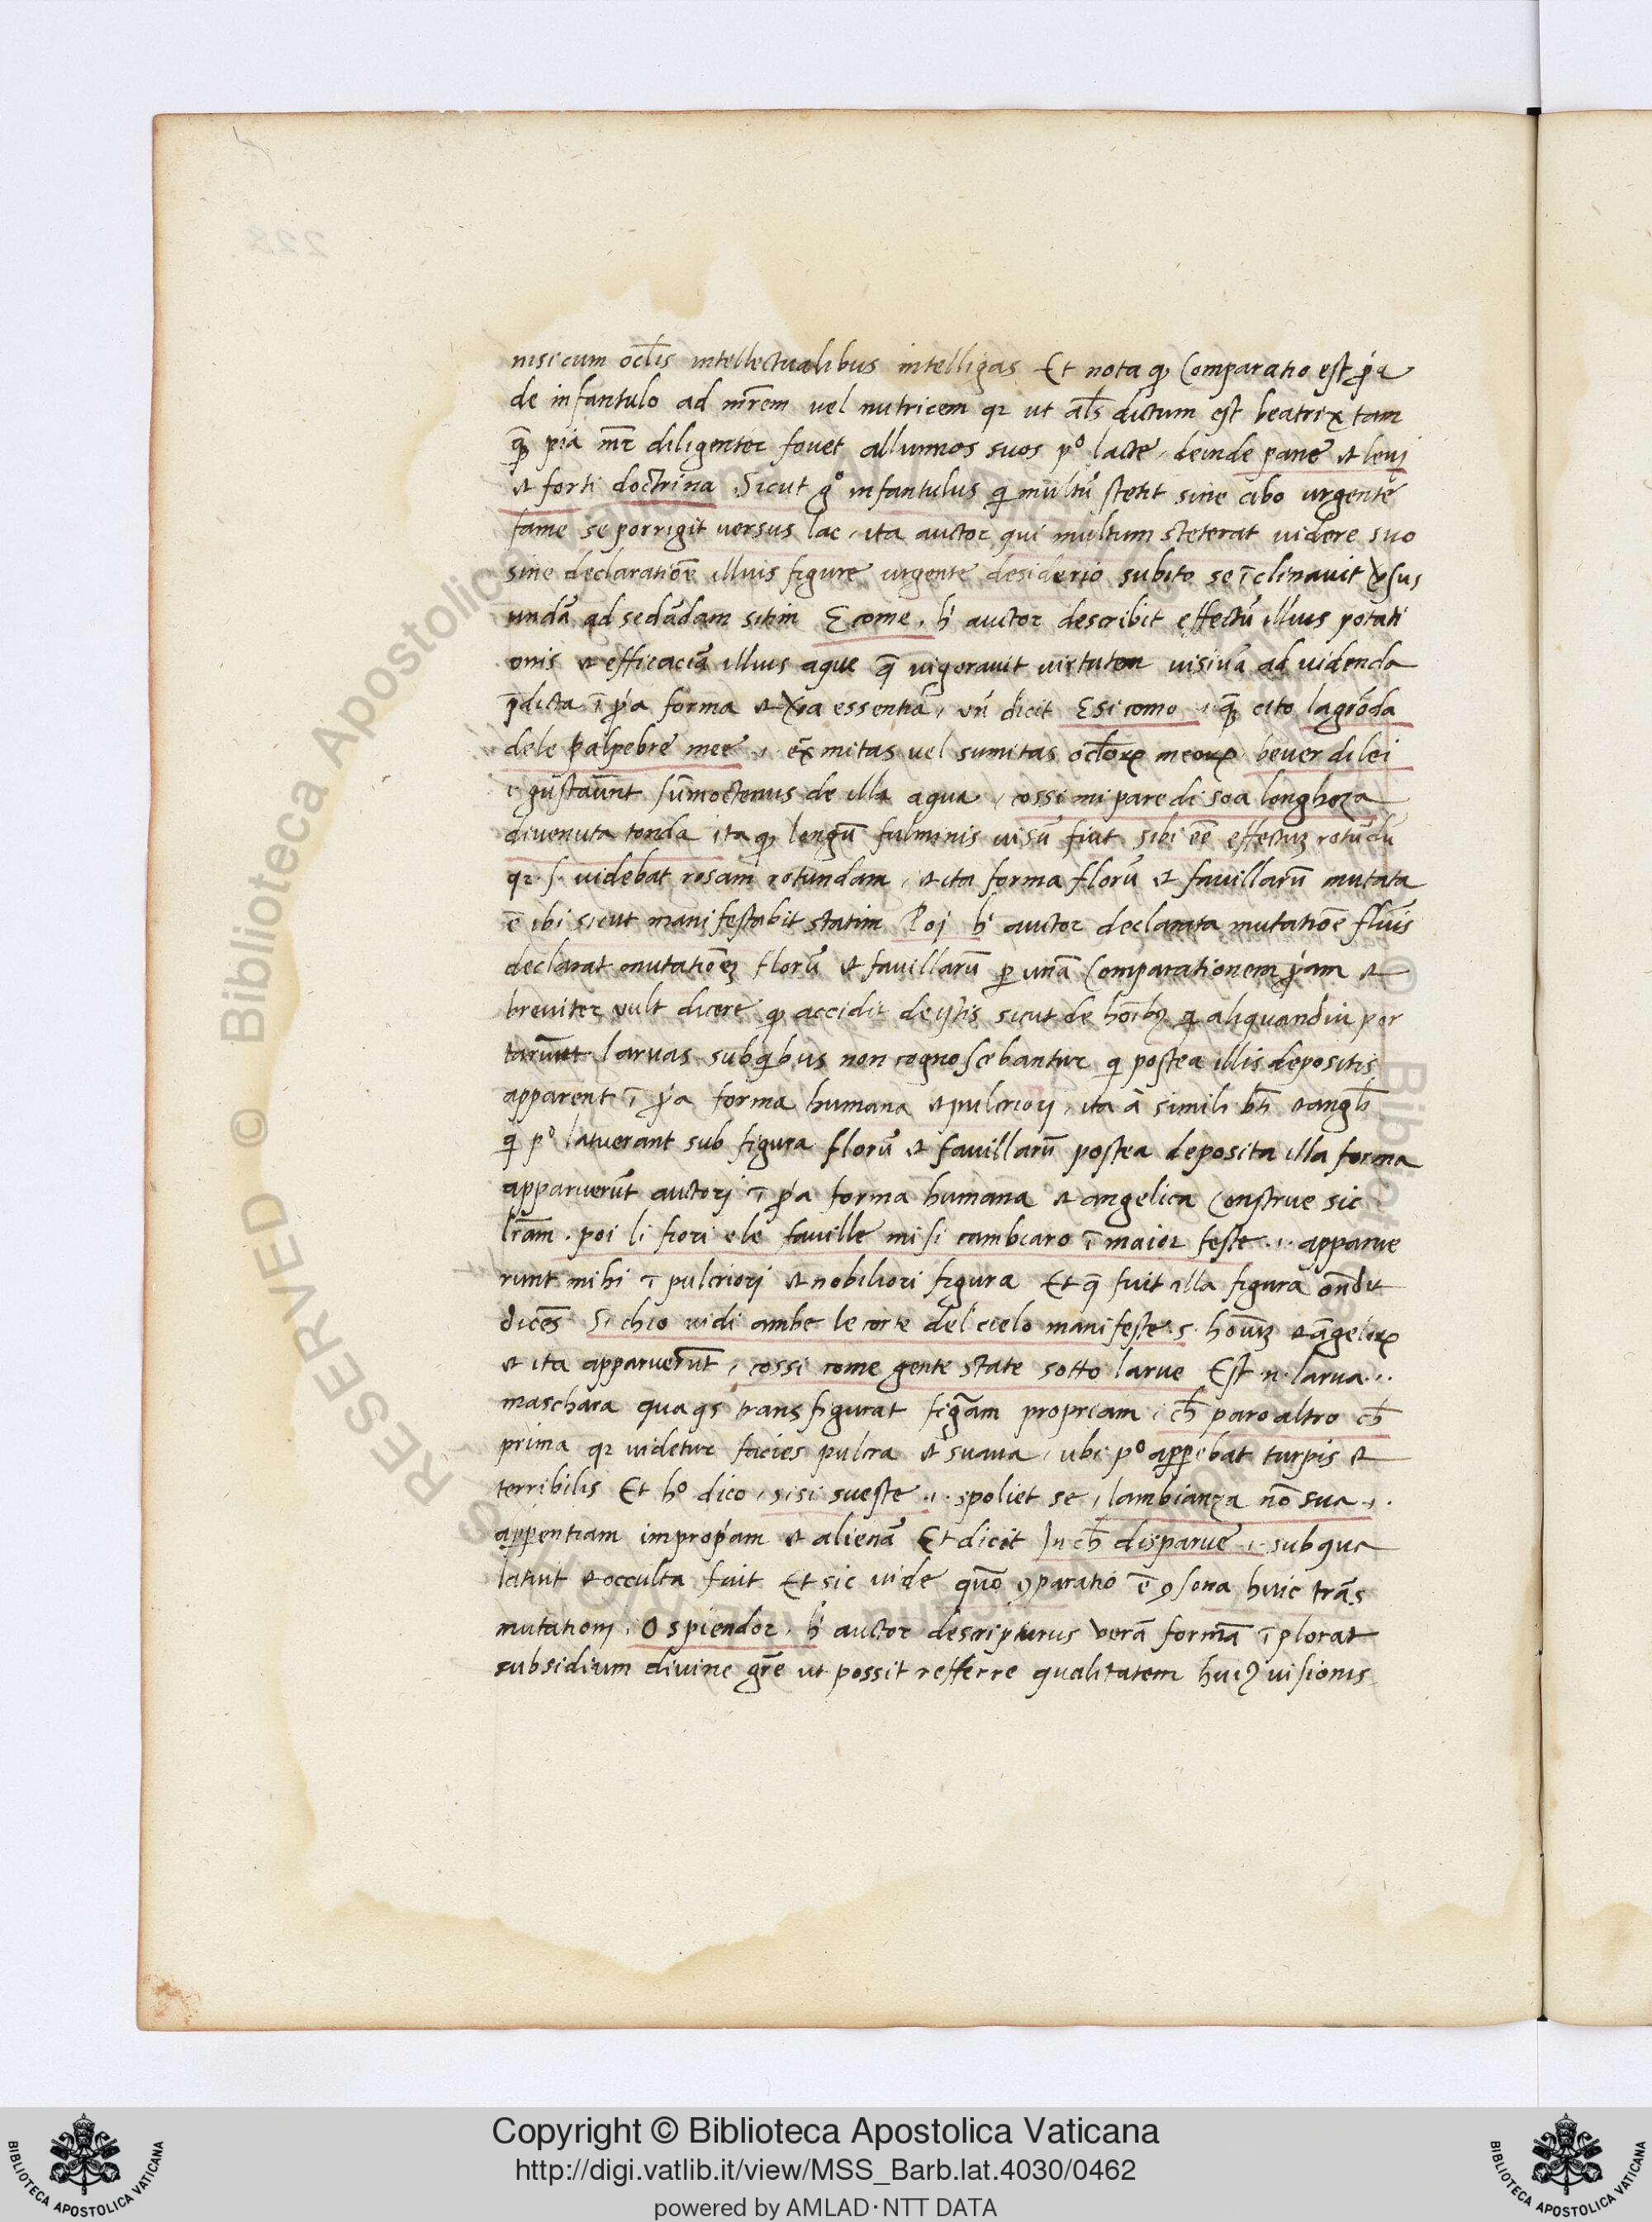 nisi cum ocl̄is intellectualibus intelligas Et nota ꝙ Comparatio est ꝓ́a
de infantulo ad mr̄em vel nutricem qꝛ ut al̄s dictum est beatrix tam
qͣꝫ pia mr̄ diligenter fovet allumnos suos pº lacte, deinde pane et leuj
et forti doctrina Sicut gº infantulus qi multū stetit sine cibo urgente
fame se porrigit versus lac, ita auctor qui multum steterat videre suo
sine declaratiōe illius figure urgente desiderio subito se ī clinavit v̓sus
undā ad sedādam sitim E come. h̓ auctor describit effectū illius potati
onis et efficaciā illius aque q̄ vigoravit virtutem visivā ad videnda
p̄dicta ī ꝓ́a forma et v̓a essentia, vn̄ dicit E si como .i. qͣꝫ cito la grōda
dele palpebre mee .i. ex̄mitas vel sumitas ocl̄oꝝ meoꝝ bever di lei
.i. gustav̄nt sūmoctenus de illa aqua, cossi mi pare di soa longheza
divenuta tonda ita ꝙ longū fulminis visū fiut sibi eē effectuꝫ rotūdū
qꝛ .s. videbat rosam rotundam, et ita forma florū et favillarū mutata
ē ibi sicut manifestabit statim Poj h̓ auctor declarata mutatiōe flūis
declarat mutatiōeꝫ florū et favillarū ꝑ unā Comparationem ꝓ́am et
breviter vult dicere ꝙ accidit de ijstis sicut de hoībꝫ qi aliquandiu por
tarūnt larvas sub qibus non cognoscebantur qi postea illis depositis
apparent ī ꝓ́a forma humana et pulcriorj, ita à simili bt̄i et angl̄i
qi pº latuerant sub figura florū et favillarū postea deposita illa forma
apparuerūt auctorj ī ꝓ́a forma humana et angelica Construe sic
lr̄am. poi li fiori e le faville mi si cambiaro ī maior feste .i. apparue
runt mihi ī pulcriorj et nobiliori figura Et q̄ fuit illa figura on̄dit
dicēs Si chio vidi ambe le corte del cielo manifeste .s. hoīuꝫ et āgeloꝝ
et ita apparuerūt, cossi come gente state sotto larve Est .n. larva .i.
maschara qua qis transfigurat figͣam propriam .i. ch̄ paro altro ch̄
prima qꝛ videtur facies pulcra et suava, ubi pº apꝑebat turpis et
terribilis Et hº dico, si si sveste .i. spoliet se, lambianza nō sua .i.
apꝑentiam impropͥam et alienā Et dicit In ch̄ disparve .i. sub qua
latuit et occulta fuit Et sic vide quō ꝯparatio ē ꝯsona huic trās
mutationj, O spiendor. h̓ auctor descripturus verā formā ī plorat
subsidium divine grē ut possit refferre qualitatem huiꝰ visionis
Copyright © Biblioteca Apostolica Vaticana
http://digi.vatlib.it/view/MSS_Barb.lat.4030/0462
powered by AMLAD·NTT DATA
BIBLIOTECA APOSTOLICA VATICANA
BIBLIOTECA APOSTOLICA VATICANA